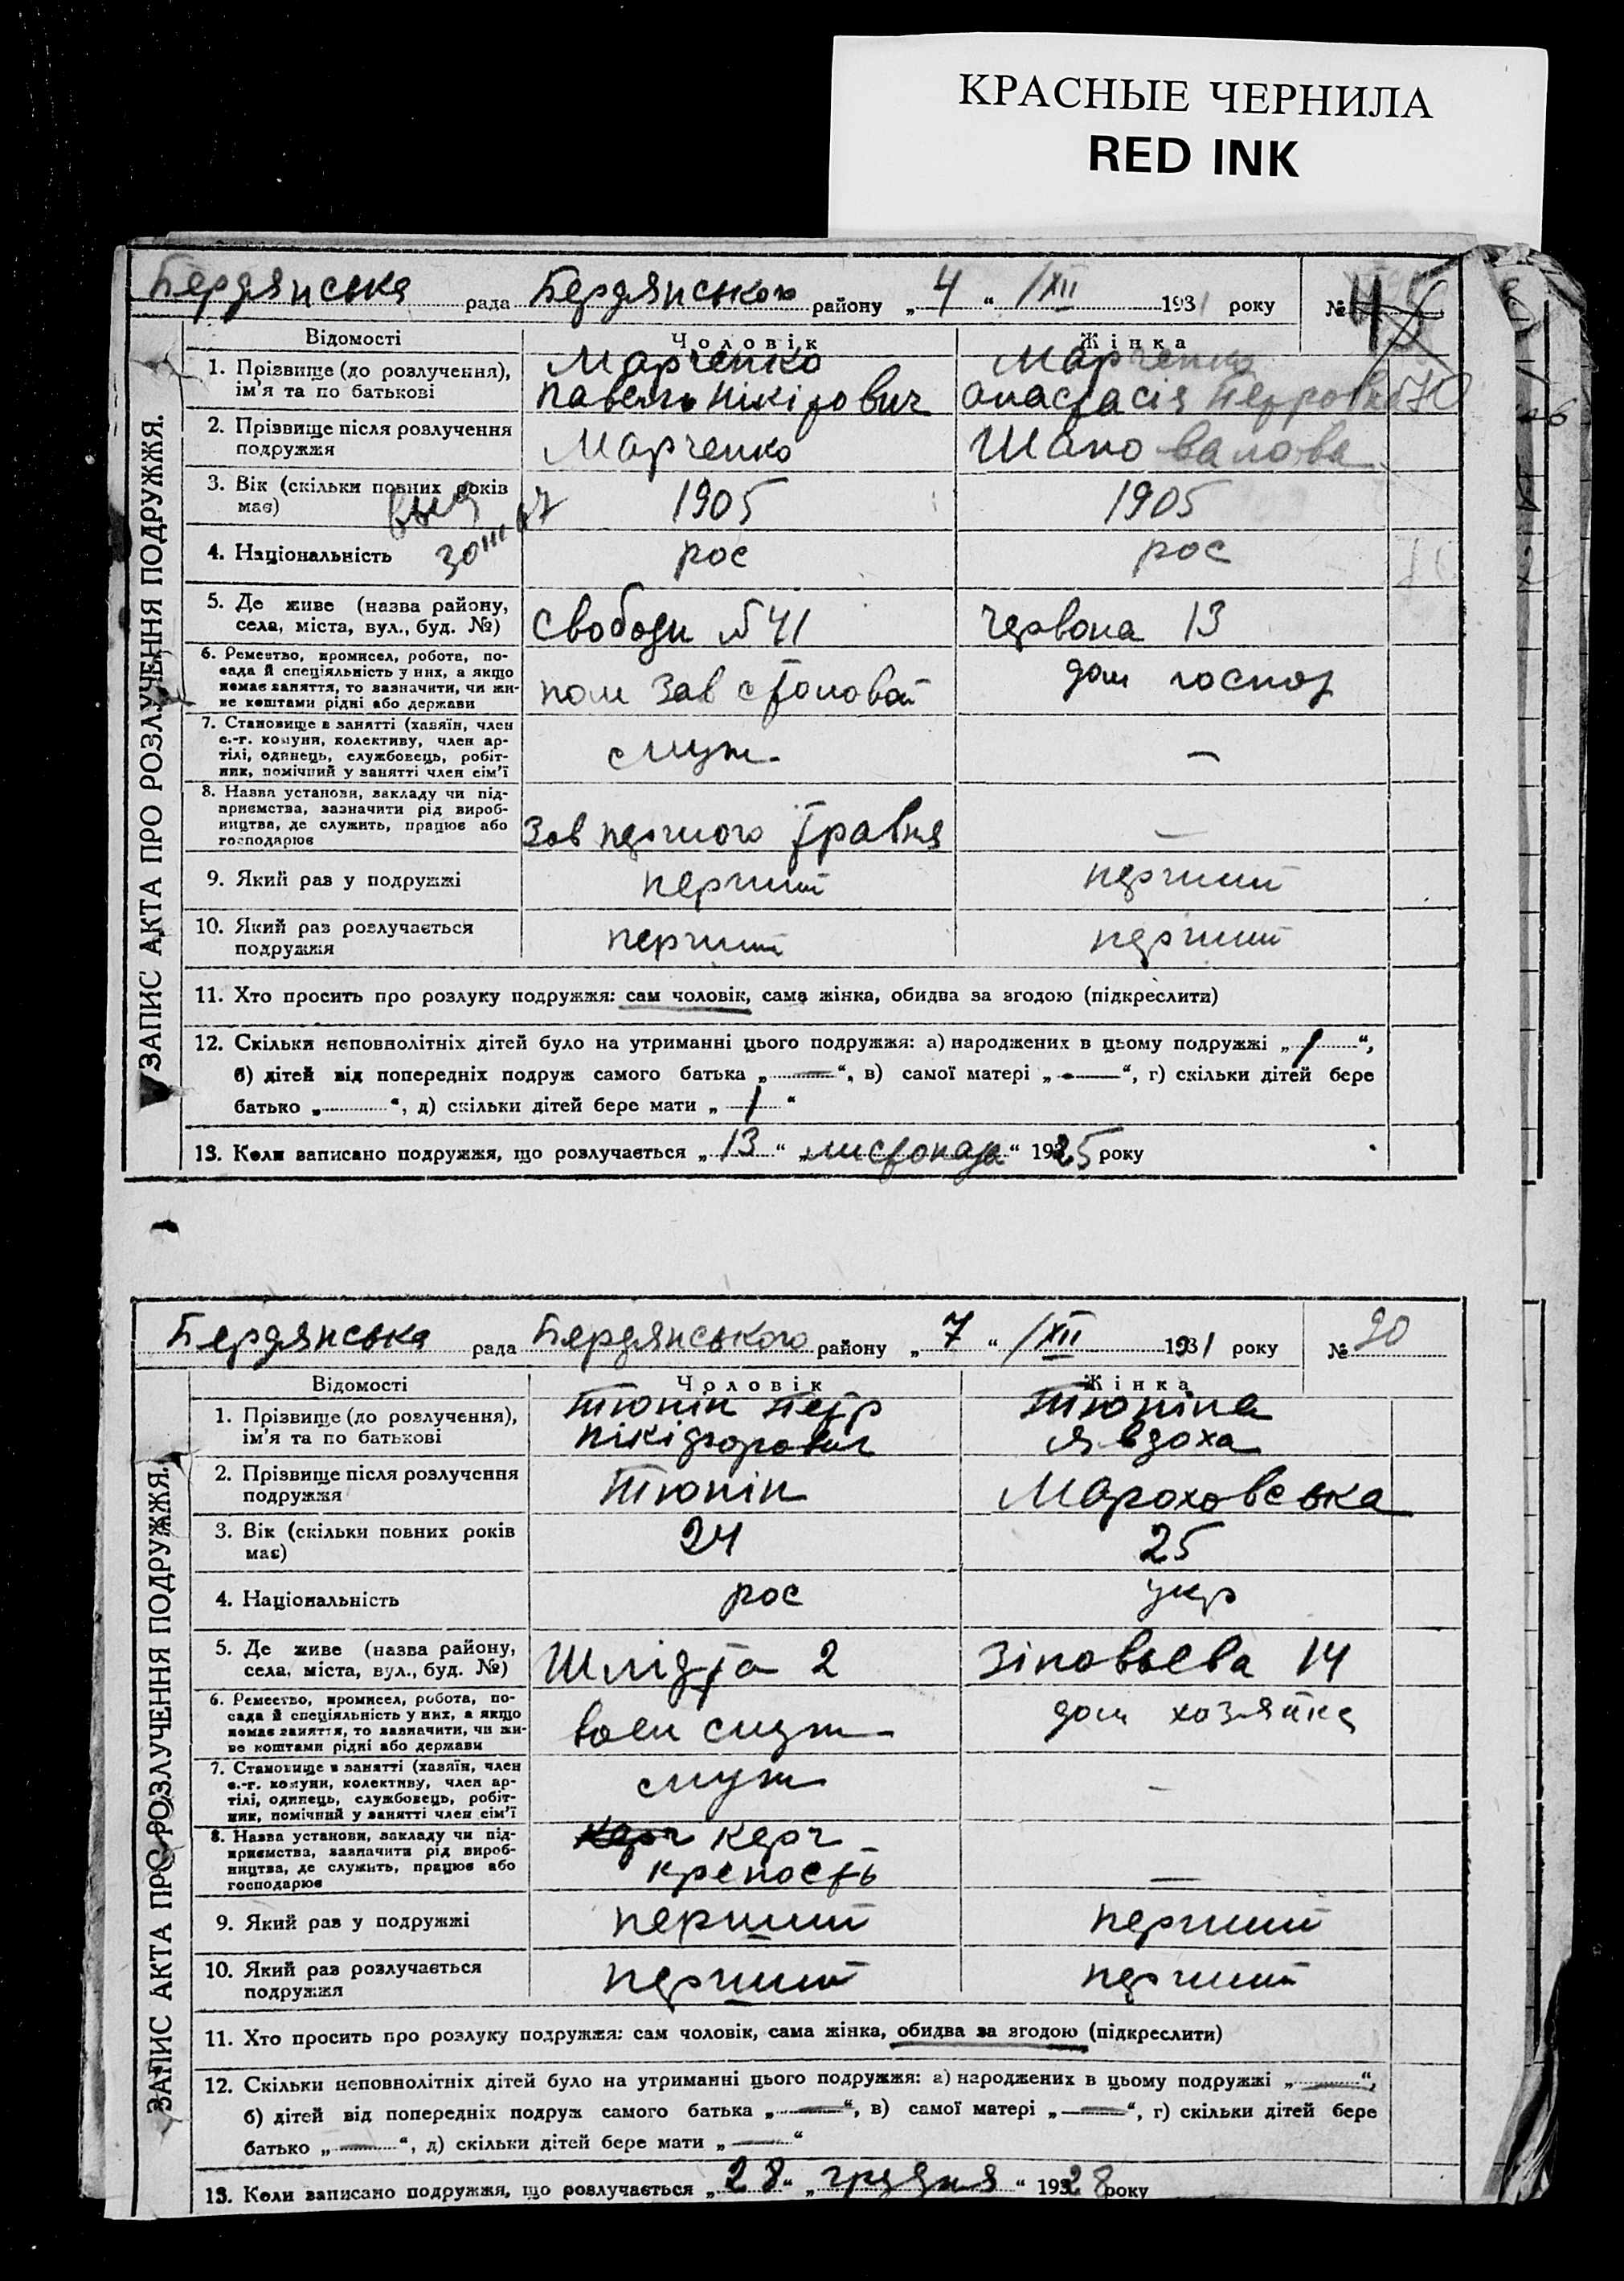 КРАСНЫЕ ЧЕРНИЛА
RED INK
ЗАПИС АКТА ПРО РОЗЛУЧЕННЯ ПОДРУЖЖЯ.
Бердянська рада Бердянського району „ 4 “ /XII 1931 року №
Відомості Чоловік Жінка
1. Прізвище (до розлучення), Марченко Марченко
ім'я та по батькові Павело Нікітович Анастасія Петровна 70
2. Прізвище після розлучення Марченко Шаповалова
подружжя
3. Вік (скільки повних років 1905 1905
має)
4. Національність рос рос
5. Де живе (назва району, Свободи №41 Червона 13
села, міста, вул., буд. №)
6. Ремество, промисел, робота, по- пом зав столовой дом господ
сада й спеціяльність у них, а якщо
немає заняття, то зазначити, чи жи-
ве коштами рідні або держави
7. Становище в занятті (хазяїн, член служ —
с.-г. комуни, колективу, член ар-
тілі, одинець, службовець, робіт-
ник, помічний у занятті член сім'ї
8. Назва установи, закладу чи під- Зав першого травня —
приємства, зазначити рід вироб-
ництва, де служить, працює або
господарює
9. Який раз у подружжі перший перший
10. Який раз розлучається перший перший
подружжя
11. Хто просить про розлуку подружжя: сам чоловік, сама жінка, обидва за згодою (підкреслити)
12. Скільки неповнолітніх дітей було на утриманні цього подружжя: а) народжених в цьому подружжі „ 1 “,
б) дітей від попередніх подруж самого батька „ — “, в) самої матері „ — “, г) скільки дітей бере
батько „ “, д) скільки дітей бере мати „ 1 “
13. Коли записано подружжя, що розлучається „ 13 “ листопада “ 1925 року
ЗАПИС АКТА ПРО РОЗЛУЧЕННЯ ПОДРУЖЖЯ.
Бердянська рада Бердянського району „ 7 “ /XII 1931 року № 90
Відомості Чоловік Жінка
1. Прізвище (до розлучення), Тюпін Петр Тюпіна
ім'я та по батькові Нікідфорович Явдоха
2. Прізвище після розлучення Тюпін Мароховська
подружжя
3. Вік (скільки повних років 24 25
має)
4. Національність рос укр
5. Де живе (назва району, Шмідта 2 Зіновьєва 14
села, міста, вул., буд. №)
6. Ремество, промисел, робота, по- воен служ дом хозяйка
сада й спеціяльність у них, а якщо
немає заняття, то зазначити, чи жи-
ве коштами рідні або держави
7. Становище в занятті (хазяїн, член служ —
с.-г. комуни, колективу, член ар-
тілі, одинець, службовець, робіт-
ник, помічний у занятті член сім'ї
8. Назва установи, закладу чи під- Керч Керч
приємства, зазначити рід вироб- крепость —
ництва, де служить, працює або
господарює
9. Який раз у подружжі перший перший
10. Який раз розлучається перший перший
подружжя
11. Хто просить про розлуку подружжя: сам чоловік, сама жінка, обидва за згодою (підкреслити)
12. Скільки неповнолітніх дітей було на утриманні цього подружжя: а) народжених в цьому подружжі „ — “,
б) дітей від попередніх подруж самого батька „ — “, в) самої матері „ — “, г) скільки дітей бере
батько „ — “, д) скільки дітей бере мати „ — “
13. Коли записано подружжя, що розлучається „ 28 “ „ грудня “ 1928 року